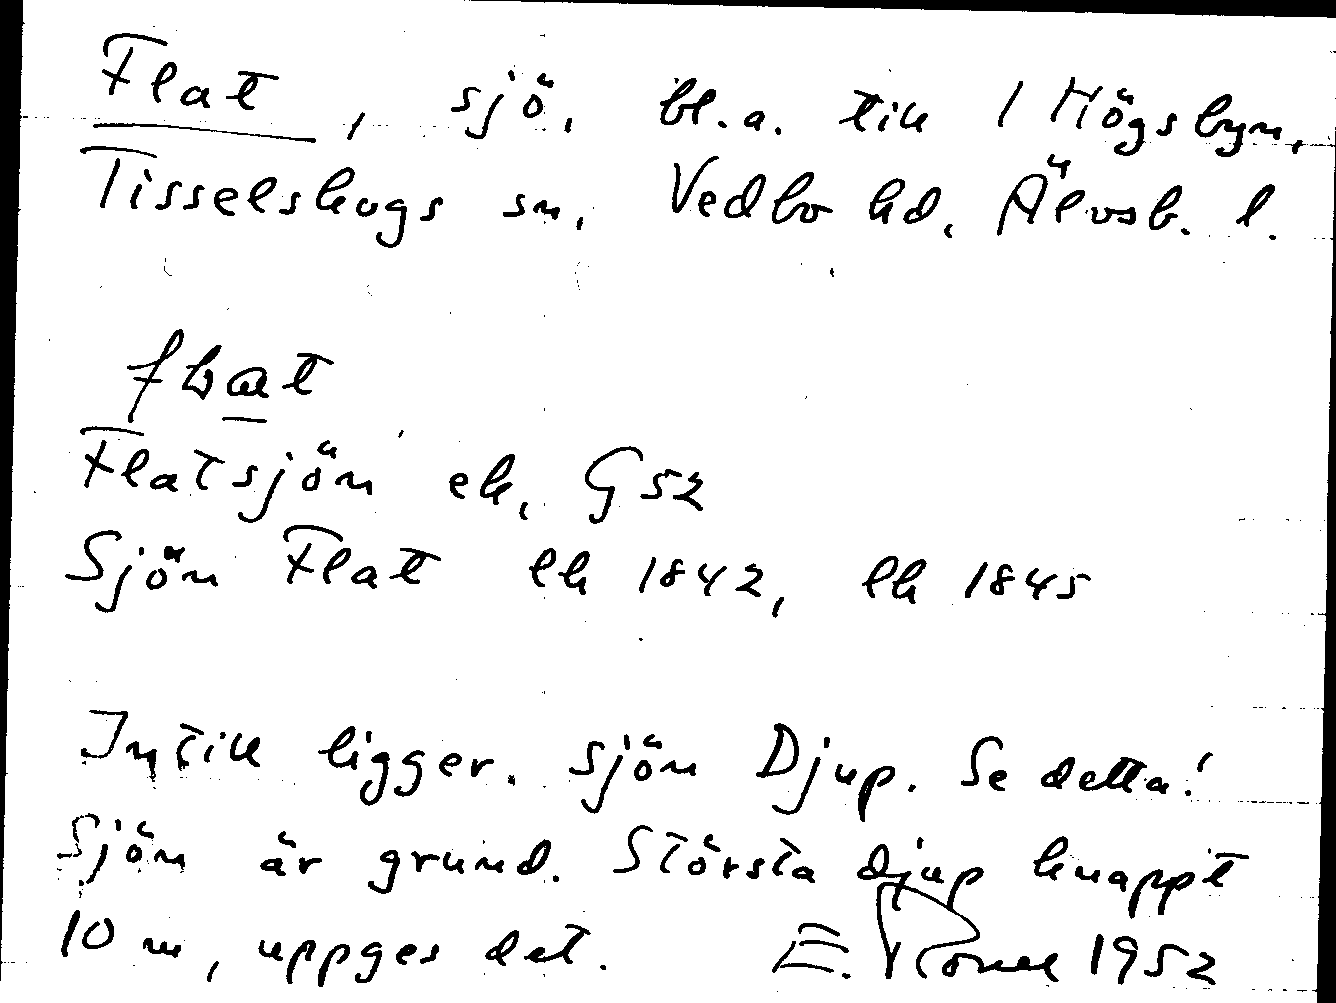 Flat, sjö, bl.a. till 1 Högsbyn,
Tisselskogs sn, Vedbo hd, Älvsb. l.
Flatsjön ek, G 52
Sjön Flat lk 1842, lk 1845
Intill ligger sjön Djup. Se detta!
Sjön är grund. Största djup knappt
10 m, uppges det. E. 1952